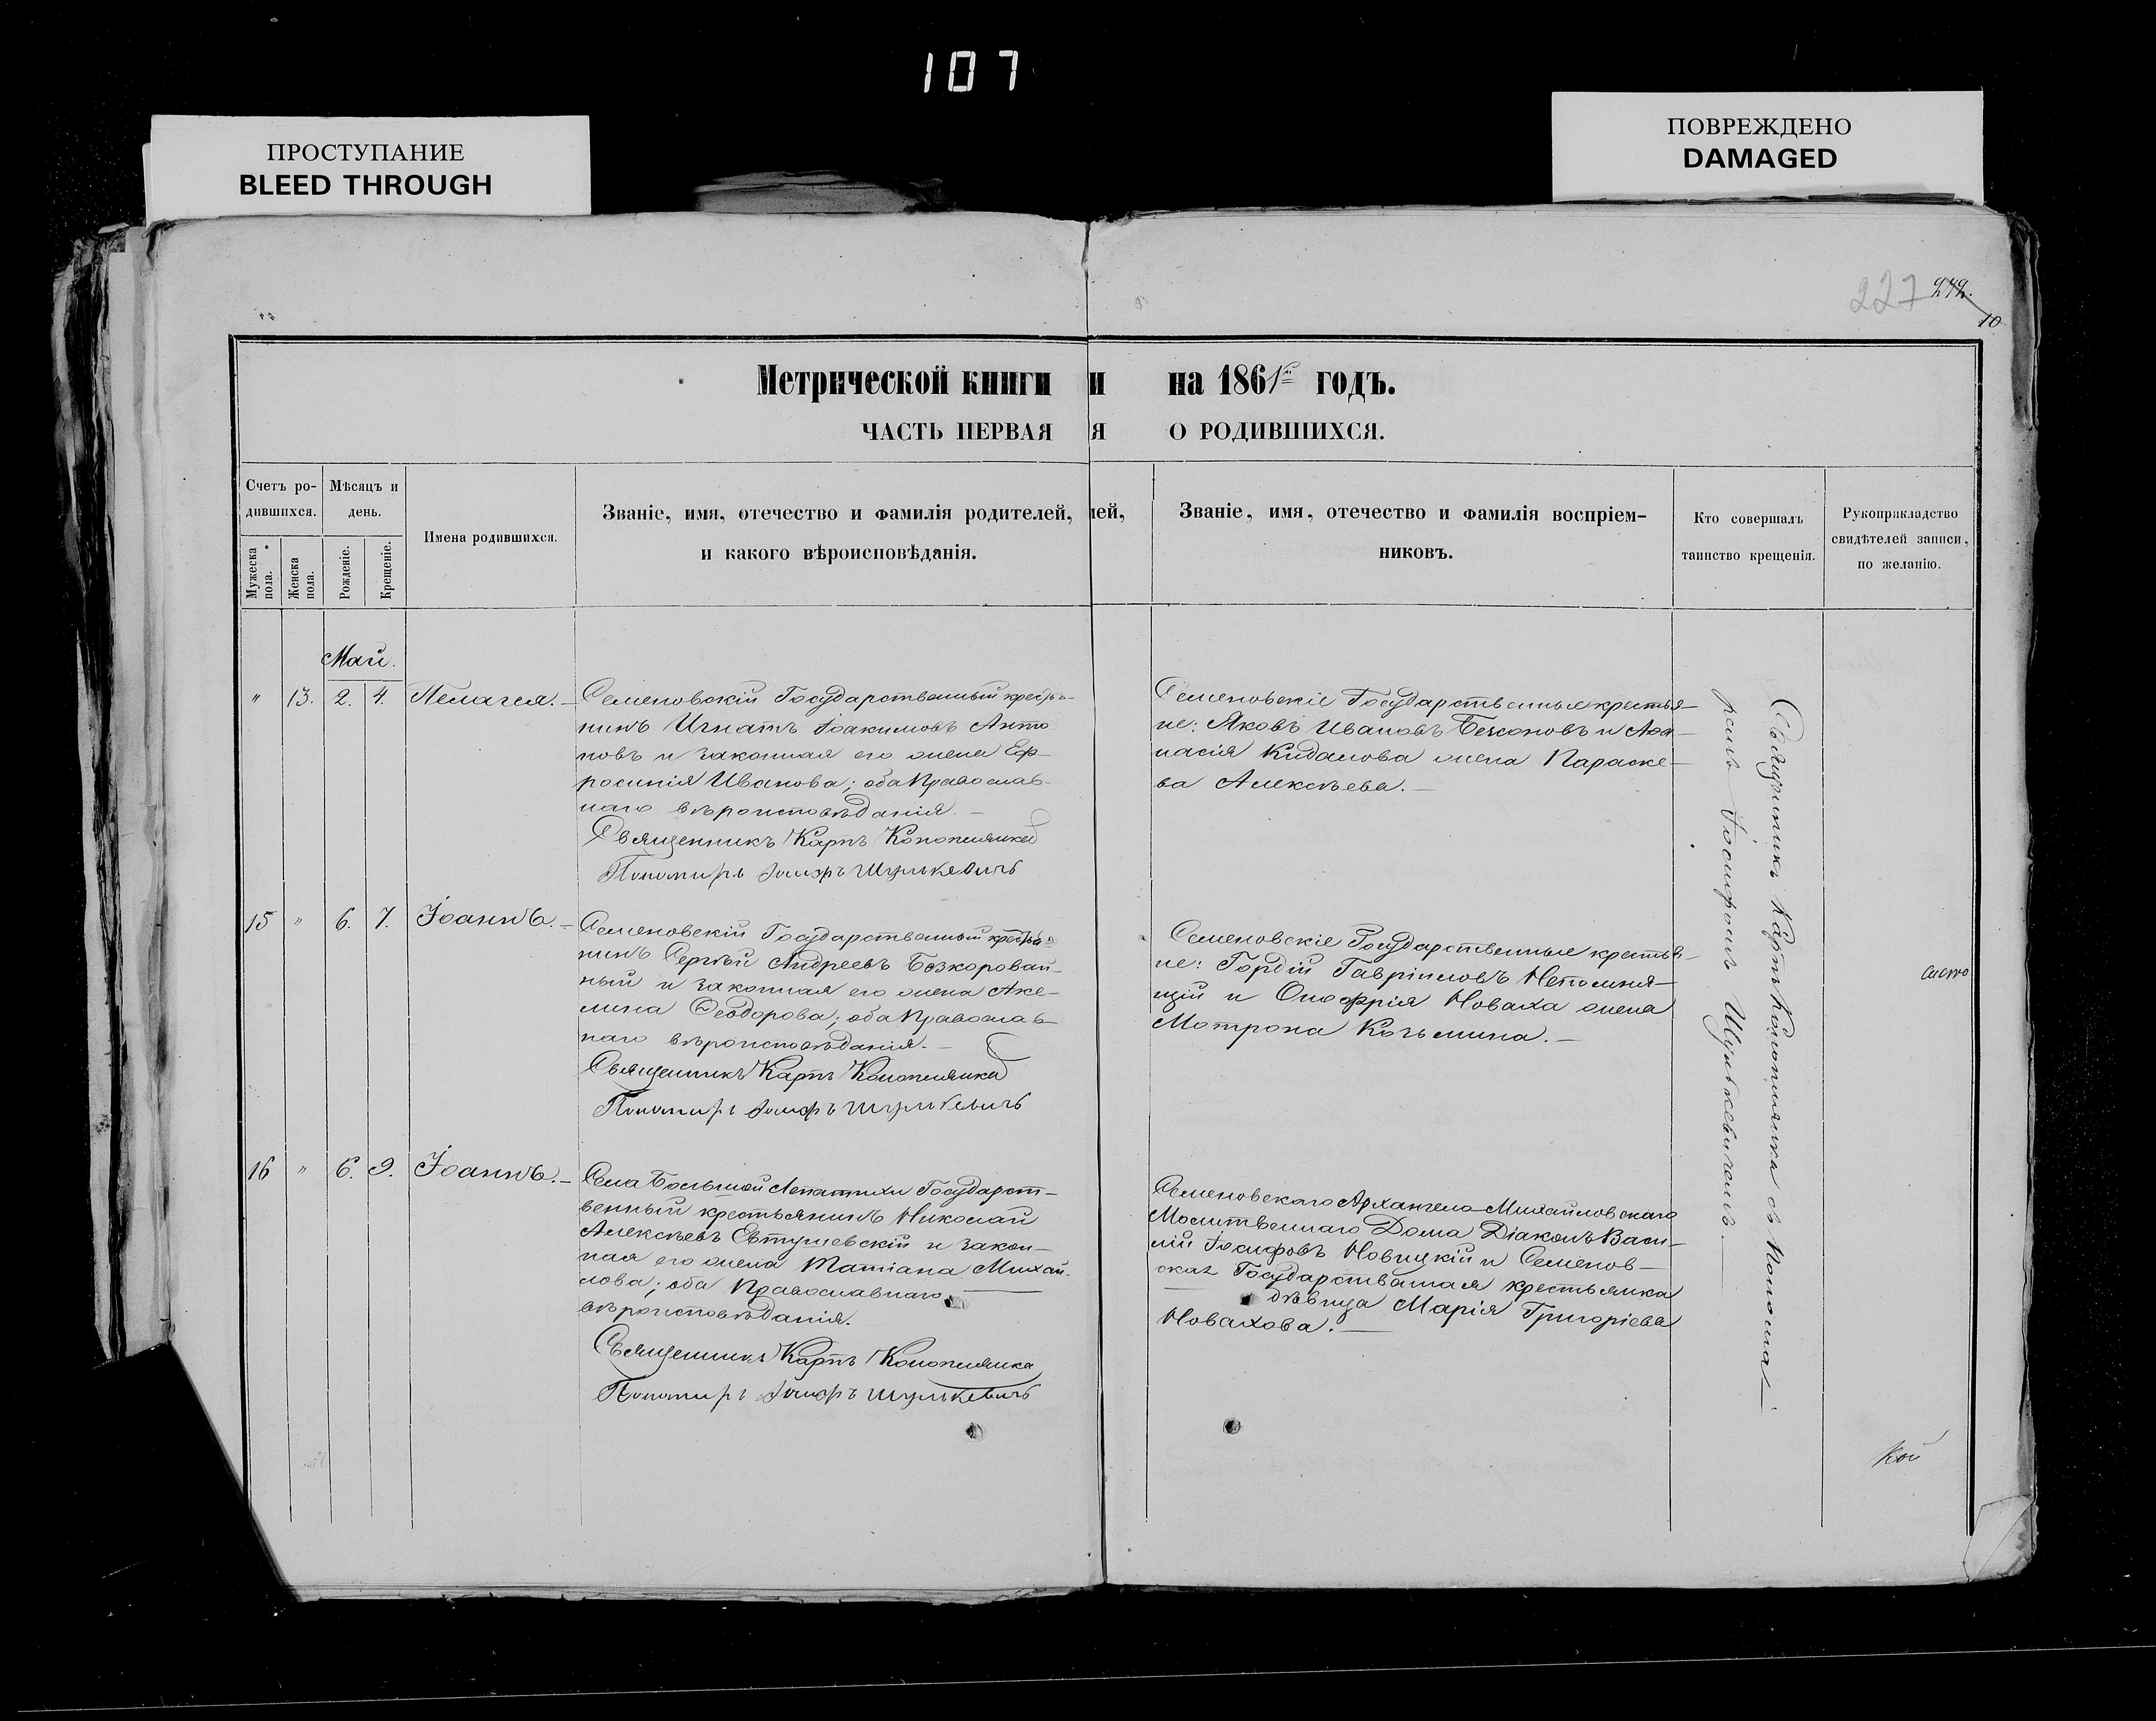 107
ПРОСТУПАНИЕ
BLEED THROUGH
ПОВРЕЖДЕНО
DAMAGED
227 242.
10
Метрической книги и на 1861й годъ.
ЧАСТЬ ПЕРВАЯ Я О РОДИВШИХСЯ.
Счетъ ро-
дившихся.
Мужеска пола.
Женска пола.
Мѣсяцъ и
день.
Рожденіе.
Крещеніе.
Имена родившихся.
Званіе, имя, отчество и фамилія родителей, лей,
и какого вѣроисповѣданія.
Званіе, имя, отечество и фамилія воспріем-
никовъ.
Кто совершалъ
таинство крещенія.
Рукоприкладство
свидѣтелей записи,
по желанію.
Май.
" 13. 2. 4. Пелагея.
Семеновскій Государственный крестья-
нинъ Игнатъ Іоакимовъ Анто-
новъ и законная его жена Еф-
росинія Иванова; оба Православ-
наго вѣроисповѣданія.
Священникъ Карпъ Коноплянка
Пономарь Іосифъ Шулькевичъ
Семеновскіе Государственные крестья-
не: Яковъ Ивановъ Безсоновъ и Аѳа-
насія Кидалова жена Параске-
ва Алексѣева.
15 " 6. 7. Іоаннъ.
Семеновскій Государственный крестья-
нинъ Сергѣй Андреевъ Безкоровай-
ный и законная его жена Аке-
лина Ѳеодорова; оба Православ-
наго вѣроисповѣданія.
Священникъ Карпъ Коноплянка
Пономарь Іосифъ Шулькевичъ
Семеновскіе Государственные крестья-
не: Гордій Гавріиловъ Непомня-
щій и Онофрія Новаха жена
Мотрона Козьмина.
16 " 6. 9. Іоаннъ.
Села Большой Лепатихи Государст-
венный крестьянинъ Николай
Алексѣевъ Евтушевскій и закон-
ная его жена Татіана Михай-
лова; оба Православнаго
вѣроисповѣданія.
Священникъ Карпъ Коноплянка
Пономарь Іосифъ Шулькевичъ
Семеновскаго Архангело-Михайловскаго
Молитвеннаго Дома Діаконъ Васи-
лій Іосифовъ Новицкій и Семенов-
ская Государственная крестьянка
дѣвица Марія Григоріева
Новахова.
Священникъ Карпъ Коноплянка съ Понома-
ремъ Іосифомъ Шулькевичемъ.
кой